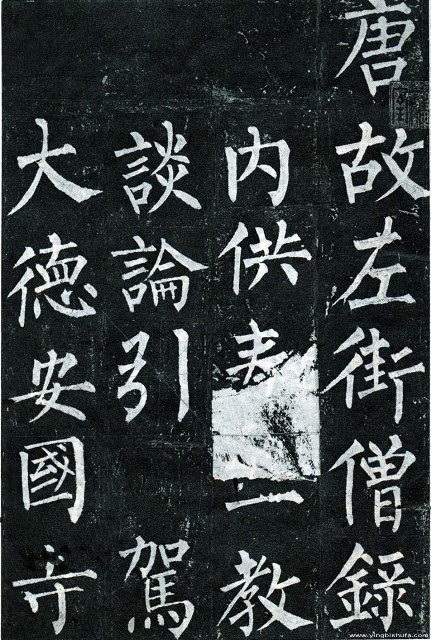 唐故左街僧錄
内供教
談論引駕
大德安國寺
www.yingbishufa.com